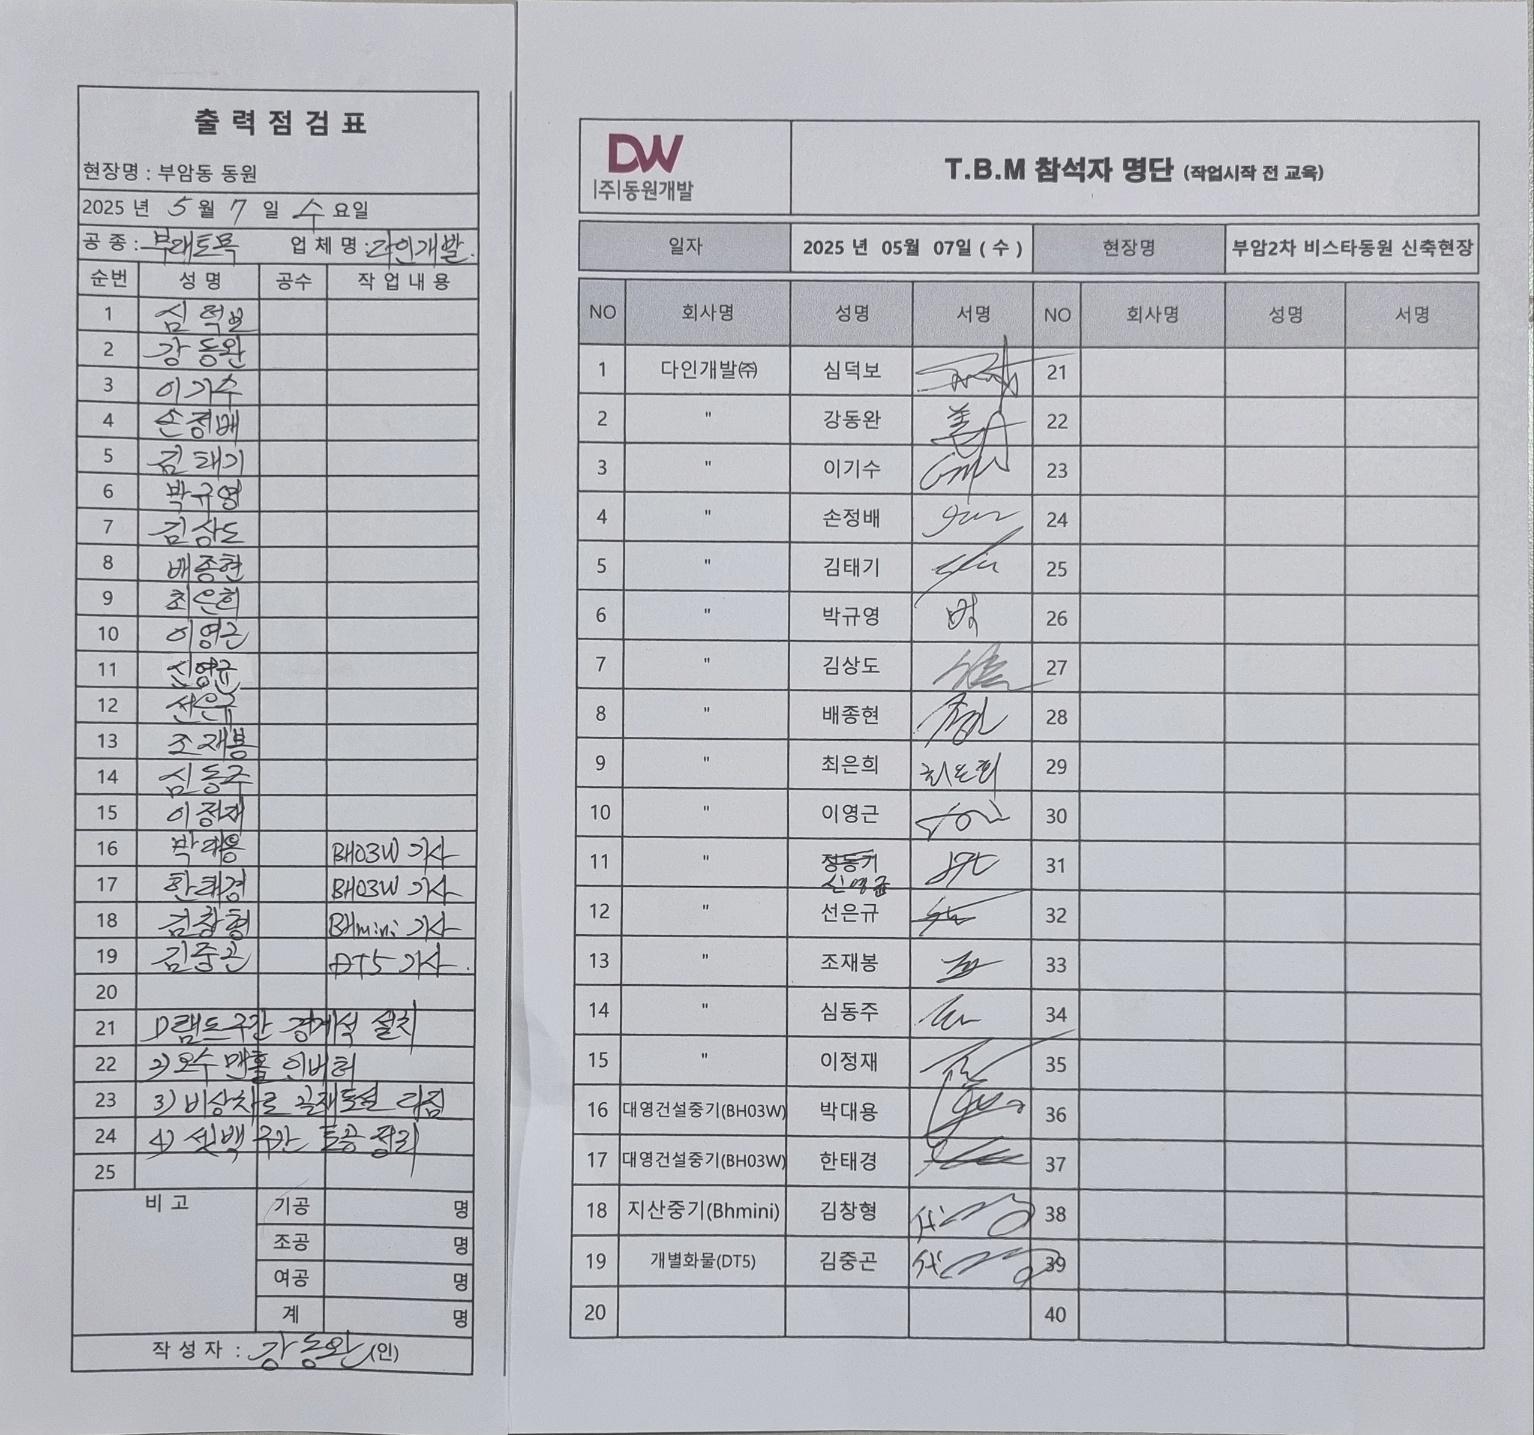 출력점검표
현장명 : 부암동 동원
2025 년 5 월 7 일 수 요일
공 종 : 부대토목 업 체 명 : 다인개발.
순번 성 명 공수 작 업 내 용
1 심덕보
2 강동완
3 이기수
4 손정배
5 김태기
6 박규영
7 김상도
8 배종현
9 최은희
10 이영근
11 신영균
12 선은규
13 조재봉
14 심동주
15 이정재
16 박대용 BH03W 기사
17 한태경 BH03W 기사
18 김창형 BHmini 기사
19 김중곤 DT5 기사.
20
21 1) 램프구간 경계석 설치
22 2) 오수 맨홀 인버터
23 3) 비상차로 골재포설 다짐
24 4) 셋백 구간 토공 정리
25
비 고 기공 명
조공 명
여공 명
계 명
작 성 자 : 강동완 (인)
DW
|주|동원개발
T.B.M 참석자 명단 (작업시작 전 교육)
일자 2025 년 05월 07일 ( 수 ) 현장명 부암2차 비스타동원 신축현장
NO 회사명 성명 서명 NO 회사명 성명 서명
1 다인개발㈜ 심덕보 21
2 " 강동완 22
3 " 이기수 23
4 " 손정배 24
5 " 김태기 25
6 " 박규영 26
7 " 김상도 27
8 " 배종현 28
9 " 최은희 최은희 29
10 " 이영근 30
11 " 정동기 31
신영균
12 " 선은규 32
13 " 조재봉 33
14 " 심동주 34
15 " 이정재 35
16 대영건설중기(BH03W) 박대용 36
17 대영건설중기(BH03W) 한태경 37
18 지산중기(Bhmini) 김창형 38
19 개별화물(DT5) 김중곤 39
20 40